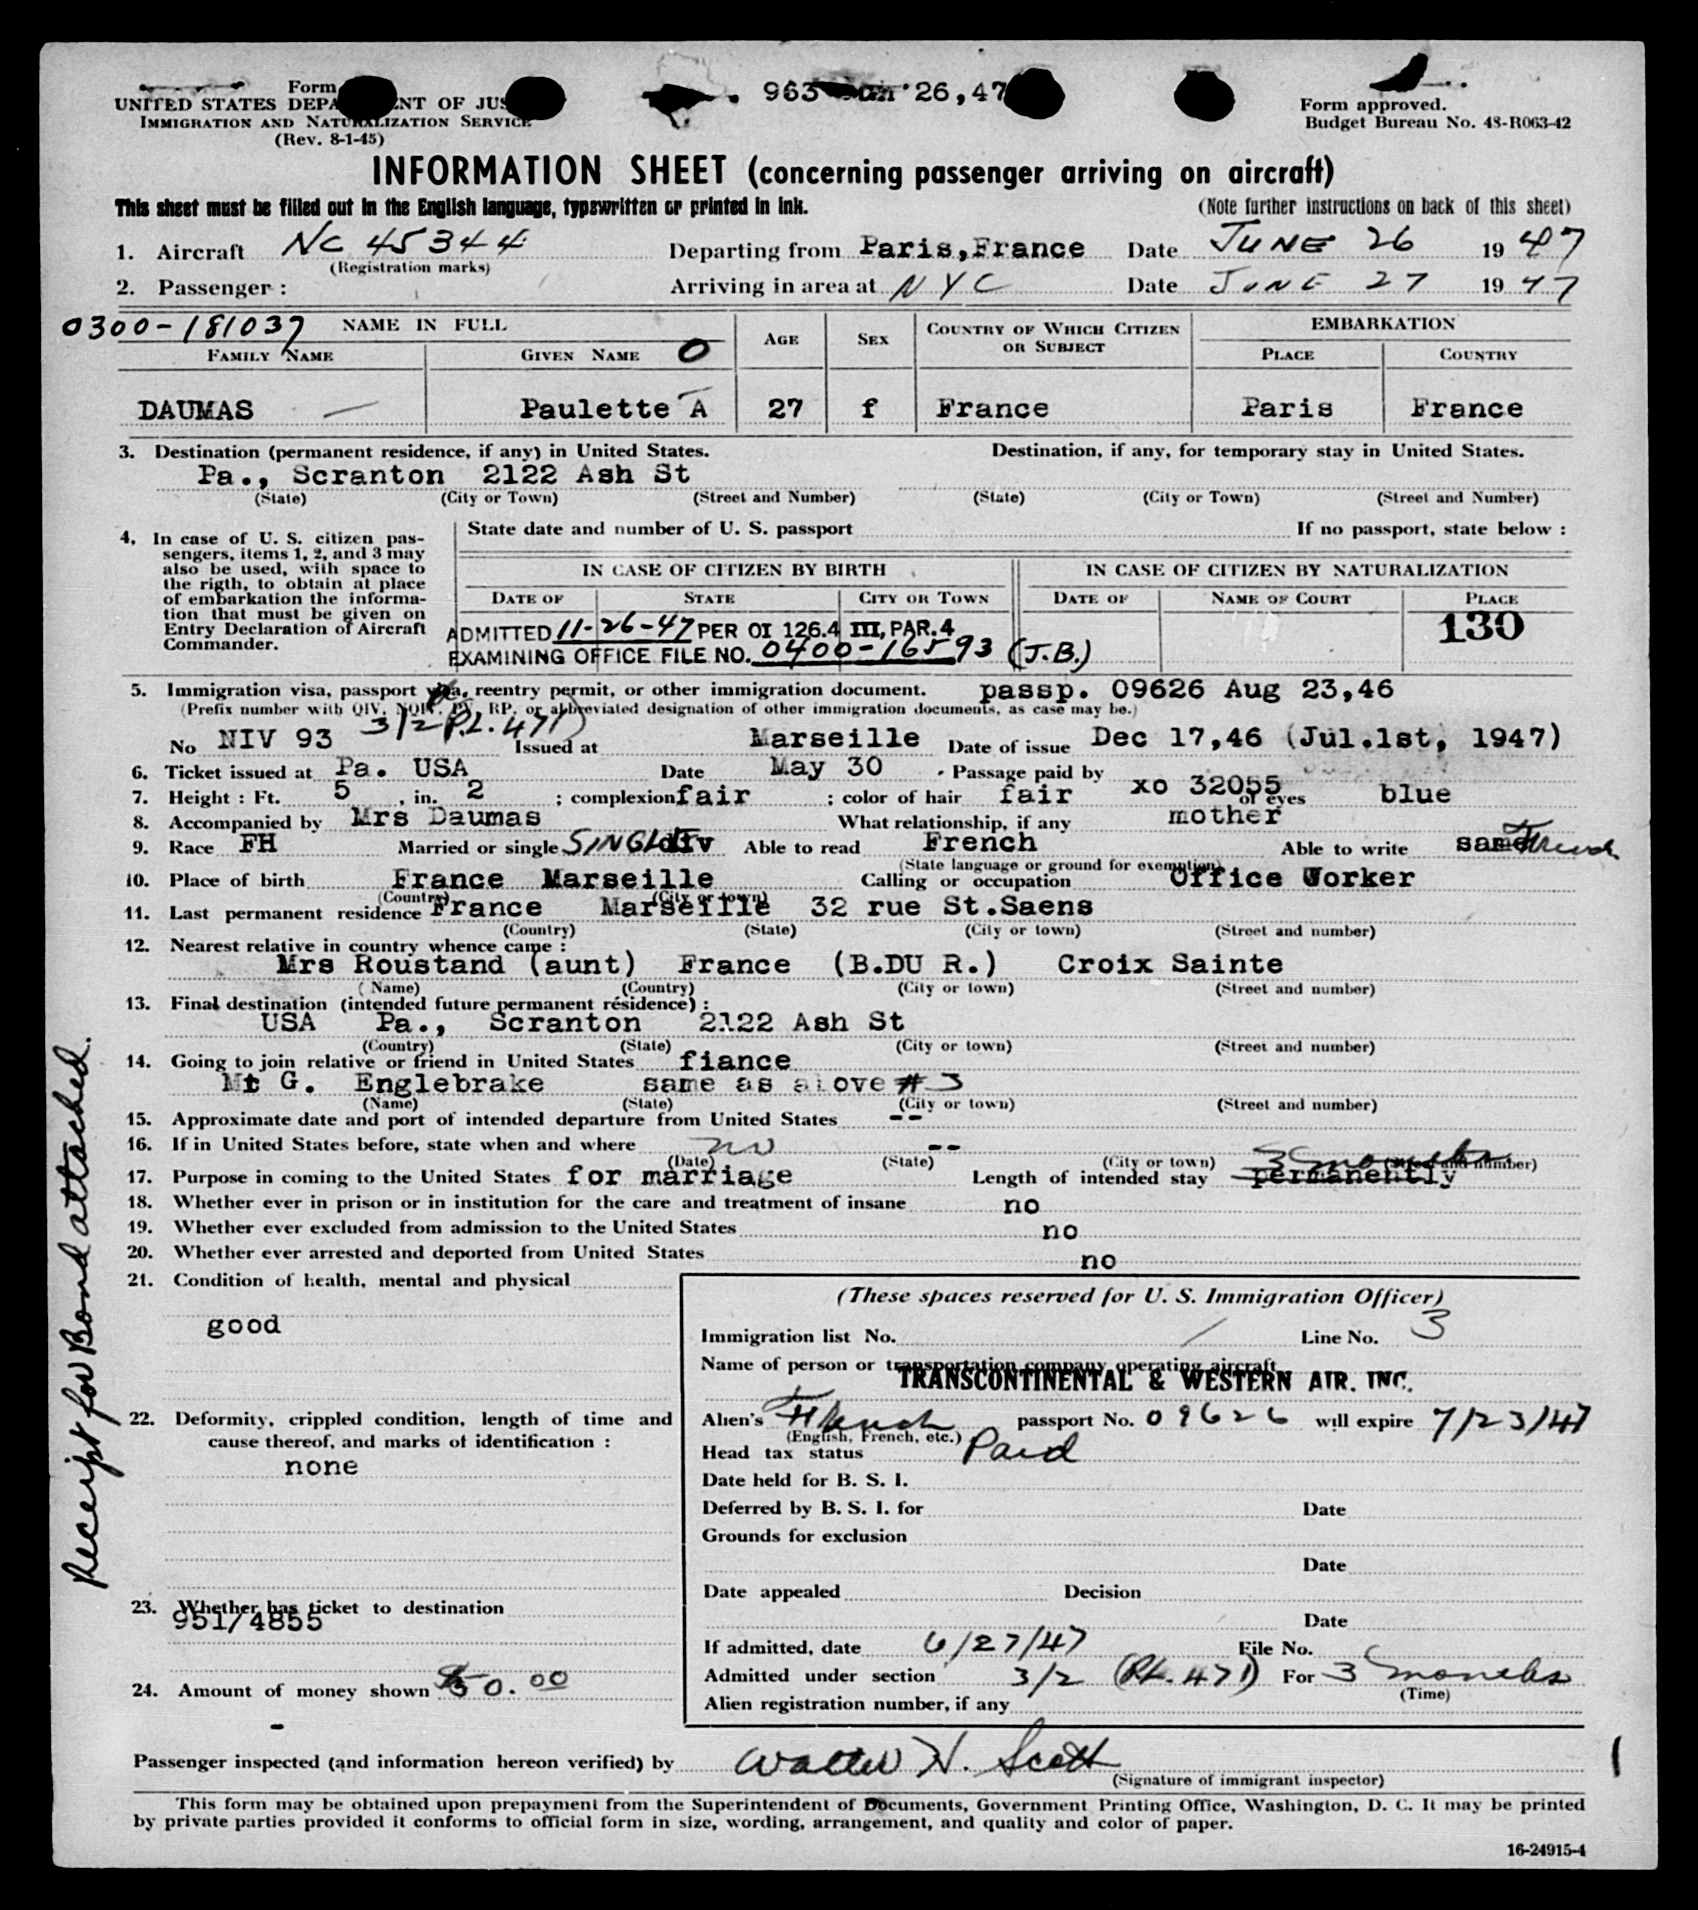 Form
963 Jun 26,47
UNITED STATES DEPA ENT OF JUS
Form approved.
IMMIGRATION AND NATURALIZATION SERVICE
Budget Bureau No. 43-R063-42
(Rev. 8-1-45)
INFORMATION SHEET (concerning passenger arriving on aircraft)
This sheet must be filled out in the English language, typewritten or printed in ink. (Note further instructions on back of this sheet)
1. Aircraft NC 45344 Departing from Paris,France Date JUNE 26 1947
(Registration marks)
2. Passenger: Arriving in area at NYC Date JUNE 27 1947
0300-181037 NAME IN FULL AGE SEX COUNTRY OF WHICH CITIZEN OR SUBJECT EMBARKATION
FAMILY NAME GIVEN NAME O PLACE COUNTRY
DAUMAS Paulette A 27 f France Paris France
3. Destination (permanent residence, if any) in United States. Destination, if any, for temporary stay in United States.
Pa., Scranton 2122 Ash St
(State) (City or Town) (Street and Number) (State) (City or Town) (Street and Number)
4. In case of U. S. citizen pas-
sengers, items 1, 2, and 3 may
also be used, with space to
the rigth, to obtain at place
of embarkation the informa-
tion that must be given on
Entry Declaration of Aircraft
Commander.
State date and number of U. S. passport If no passport, state below :
IN CASE OF CITIZEN BY BIRTH IN CASE OF CITIZEN BY NATURALIZATION
DATE OF STATE CITY OR TOWN DATE OF NAME OF COURT PLACE
130
ADMITTED 11-26-47 PER OI 126.4 III, PAR.4
EXAMINING OFFICE FILE NO. 0400-16593 (J.B.)
5. Immigration visa, passport visa, reentry permit, or other immigration document. passp. 09626 Aug 23,46
(Prefix number with QIV, NQIV, PV, RP, or abbreviated designation of other immigration documents, as case may be.)
3/2 P.L. 471)
No NIV 93 Issued at Marseille Date of issue Dec 17,46 (Jul.1st, 1947)
6. Ticket issued at Pa. USA Date May 30 . Passage paid by xo 32055
7. Height : Ft. 5 , in. 2 ; complexion fair ; color of hair fair of eyes blue
8. Accompanied by Mrs Daumas What relationship, if any mother
9. Race FH Married or single SINGLE div Able to read French Able to write same French
(State language or ground for exemption)
10. Place of birth France Marseille Calling or occupation Office Worker
(Country) (City or town)
11. Last permanent residence France Marseille 32 rue St.Saens
(Country) (State) (City or town) (Street and number)
12. Nearest relative in country whence came :
Mrs Roustand (aunt) France (B.DU R.) Croix Sainte
(Name) (Country) (City or town) (Street and number)
13. Final destination (intended future permanent résidence) :
USA Pa., Scranton 2122 Ash St
(Country) (State) (City or town) (Street and number)
14. Going to join relative or friend in United States fiance
Mt G. Englebrake same as above # 3
(Name) (State) (City or town) (Street and number)
15. Approximate date and port of intended departure from United States --
16. If in United States before, state when and where no --
(Date) (State) (City or town) (Street and number)
3 months
17. Purpose in coming to the United States for marriage Length of intended stay permanently
18. Whether ever in prison or in institution for the care and treatment of insane no
19. Whether ever excluded from admission to the United States no
20. Whether ever arrested and deported from United States no
21. Condition of health, mental and physical
good
22. Deformity, crippled condition, length of time and
cause thereof, and marks of identification :
none
23. Whether has ticket to destination
951/4855
24. Amount of money shown $50.00
-
(These spaces reserved for U. S. Immigration Officer)
Immigration list No. 1 Line No. 3
Name of person or transportation company operating aircraft
TRANSCONTINENTAL & WESTERN AIR. INC.
Alien's French passport No. 09626 will expire 7/23/47
(English, French, etc.)
Head tax status Paid
Date held for B. S. I.
Deferred by B. S. I. for Date
Grounds for exclusion
Date
Date appealed Decision
Date
If admitted, date 6/27/47 File No.
Admitted under section 3/2 (P.L. 471) For 3 months
(Time)
Alien registration number, if any
Receipt for Bond attached.
Passenger inspected (and information hereon verified) by Walter H. Scott
(Signature of immigrant inspector)
1
This form may be obtained upon prepayment from the Superintendent of Documents, Government Printing Office, Washington, D. C. It may be printed
by private parties provided it conforms to official form in size, wording, arrangement, and quality and color of paper.
16-24915-4